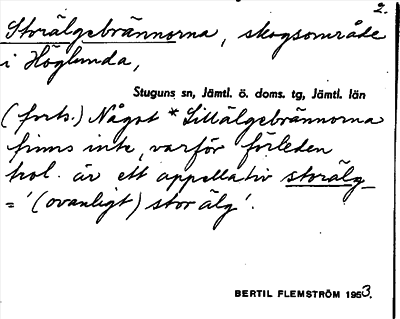 2.
Storälgebrännorna, skogsområde
i Höglunda,
Stuguns sn, Jämtl. ö. doms. tg, Jämtl. län
(forts.) Något *Lillälgebrännorna
finns inte, varför förleden
trol. är ett appellativ storälg
= '(ovanligt) stor älg'.
BERTIL FLEMSTRÖM 1953.